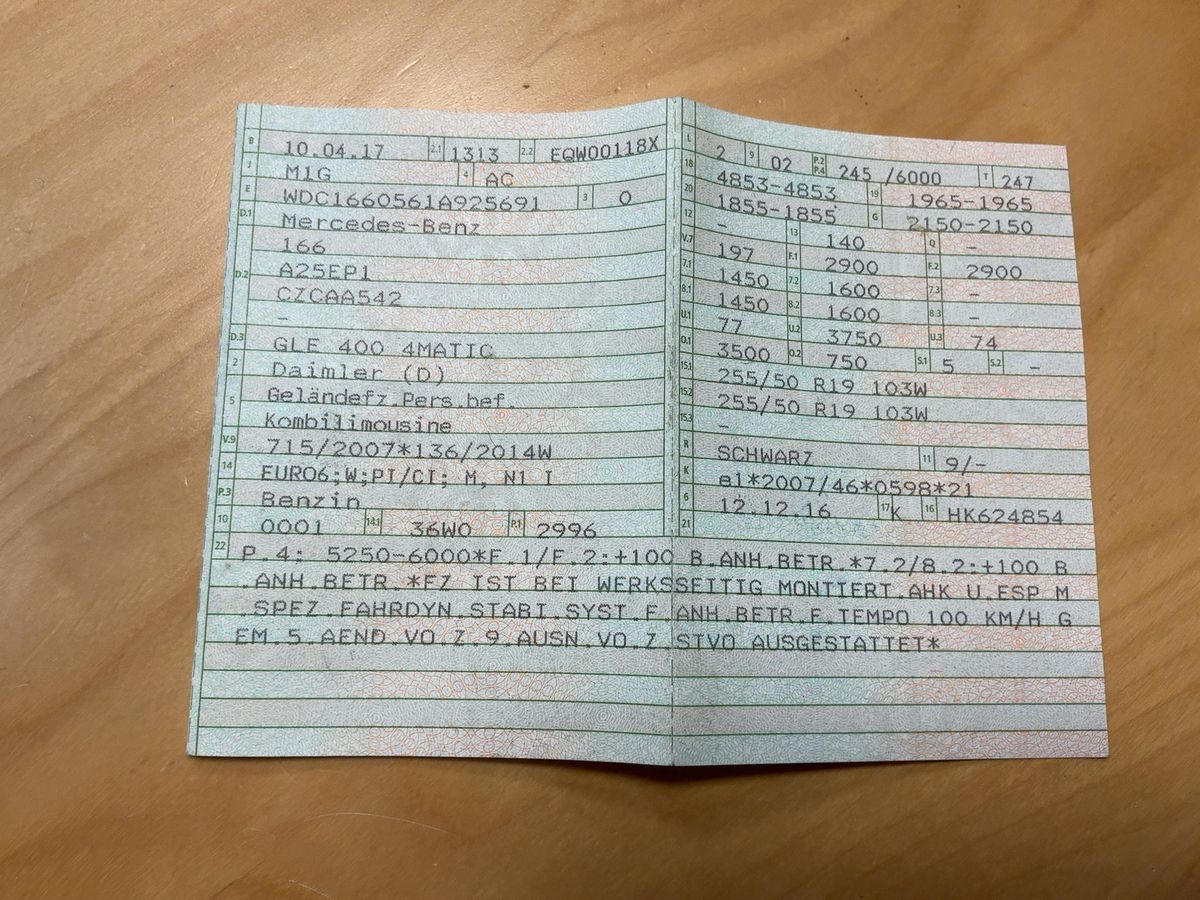 B 10.04.17 2.1 1313 2.2 EQW00118X
J M1G 4 AC
E WDC1660561A925691 3 0
D.1 Mercedes-Benz
166
D.2 A25EP1
CZCAA542
–
D.3 GLE 400 4MATIC
2 Daimler (D)
5 Geländefz.Pers.bef.
Kombilimousine
V.9 715/2007*136/2014W
14 EURO6;W;PI/CI; M, N1 I
P.3 Benzin
10 0001 14.1 36W0 P.1 2996
L 2 9 02 P.2 P.4 245 /6000 T 247
18 4853-4853 19 1965-1965
20 1855-1855 G 2150-2150
12 – 13 140 Q –
V.7 197 F.1 2900 F.2 2900
7.1 1450 7.2 1600 7.3 –
8.1 1450 8.2 1600 8.3 –
U.1 77 U.2 3750 U.3 74
O.1 3500 O.2 750 S.1 5 S.2 –
15.1 255/50 R19 103W
15.2 255/50 R19 103W
15.3 –
R SCHWARZ 11 9/-
K e1*2007/46*0598*21
6 12.12.16 17 K 16 HK624854
21
22 P.4: 5250-6000*F.1/F.2:+100 B.ANH.BETR.*7.2/8.2:+100 B
.ANH.BETR.*FZ IST BEI WERKSSEITIG MONTIERT.AHK U.ESP M
.SPEZ.FAHRDYN.STABI.SYST.F.ANH.BETR.F.TEMPO 100 KM/H G
EM.5.AEND.VO.Z.9.AUSN.VO.Z.STVO AUSGESTATTET*